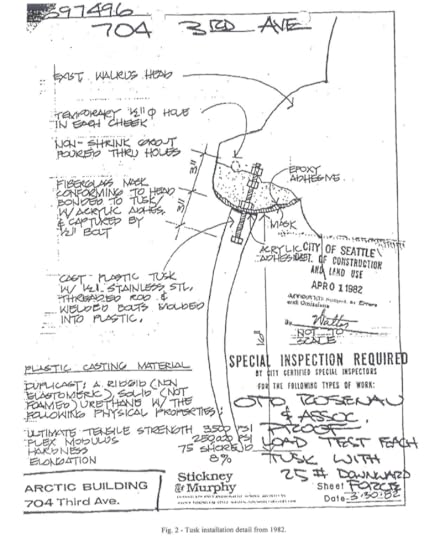 397496
704 3RD AVE
EXIST. WALRUS HEAD
TEMPORARY ½"Ø HOLE
IN EACH CHEEK
NON-SHRINK GROUT
POURED THRU HOLES
3"
3"
EPOXY
ADHESIVE
FIBERGLASS MASK
CONFORMING TO HEAD
BONDED TO TUSK
W/ ACRYLIC ADHES.
& CAPTURED BY
½" BOLT
MASK
ACRYLIC
ADHESIVE
CITY OF SEATTLE
DEPT. OF CONSTRUCTION
AND LAND USE
APR 01 1982
By
NOT TO
SCALE
CAST PLASTIC TUSK
STAINLESS STL.
THREADED ROD &
WELDED BOLTS MOLDED
INTO PLASTIC.
SPECIAL INSPECTION REQUIRED
BY CITY CERTIFIED SPECIAL INSPECTORS
FOR THE FOLLOWING TYPES OF WORK:
OTTO ROSENAU
& ASSOC.
PROOF
LOAD TEST EACH
TUSK WITH
25 # DOWNWARD
FORCE
PLASTIC CASTING MATERIAL
DUPLICAST; A RIGID (NON
ELASTOMERIC), SOLID (NOT
FOAMED) URETHANE W/ THE
FOLLOWING PHYSICAL PROPERTIES:
ULTIMATE TENSILE STRENGTH 3500 PSI
FLEX MODULUS 250,000 PSI
HARDNESS 75 SHORE D
ELONGATION 8%
ARCTIC BUILDING
704 Third Ave.
Stickney
& Murphy
Sheet
Date 3·30·82
Fig. 2 - Tusk installation detail from 1982.